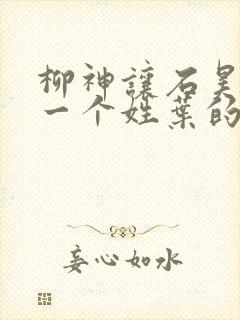 柳神讓石昊
一个姓葉的
妄心如水